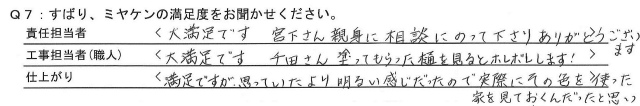 Q7:ずばり、ミヤケンの満足度をお聞かせください。
責任担当者 〈 大満足です 宮下さん親身に相談にのって下さりありがとうござい
ます 〉
工事担当者(職人) 〈 大満足です 千田さん塗ってもらった樋を見るとホレボレします! 〉
仕上がり 〈 満足ですが、思っていたより明るい感じだったので実際にその色を使った
家を見ておくんだったと思い